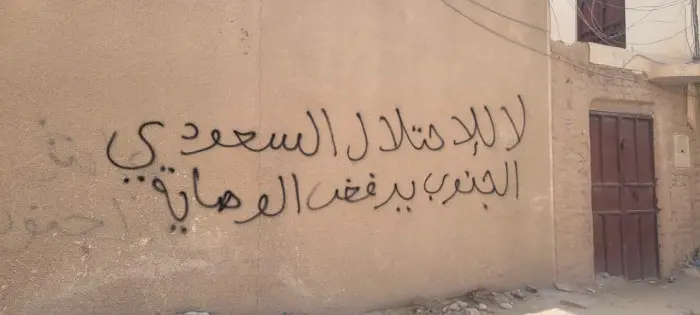 لا للإحتلال السعودي
الجنوب يرفض الوصاية